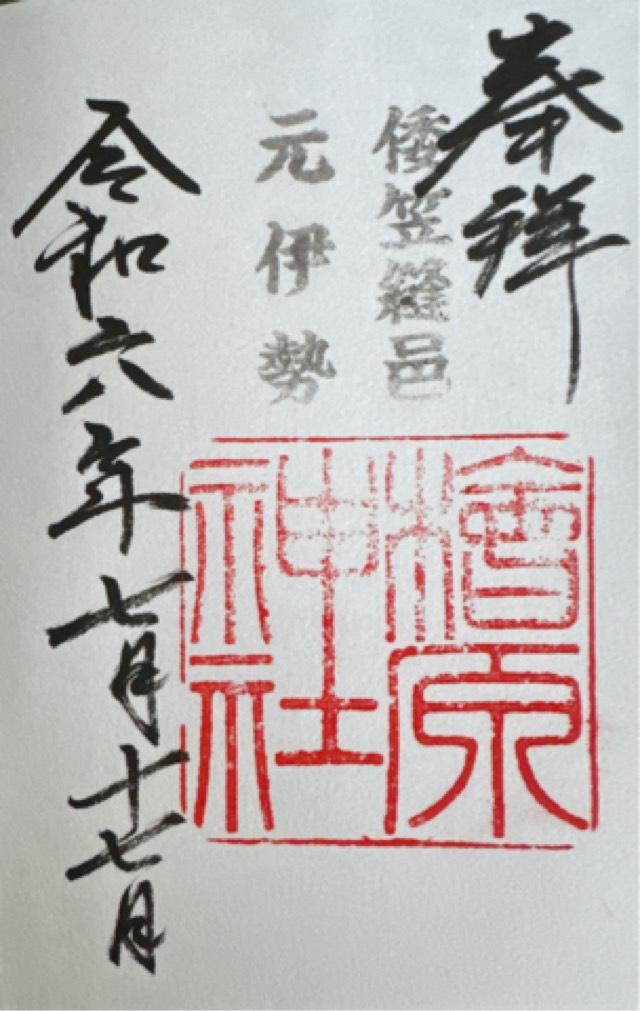 奉拝
倭笠縫邑
元伊勢
檜原
神社
令和六年七月十七日